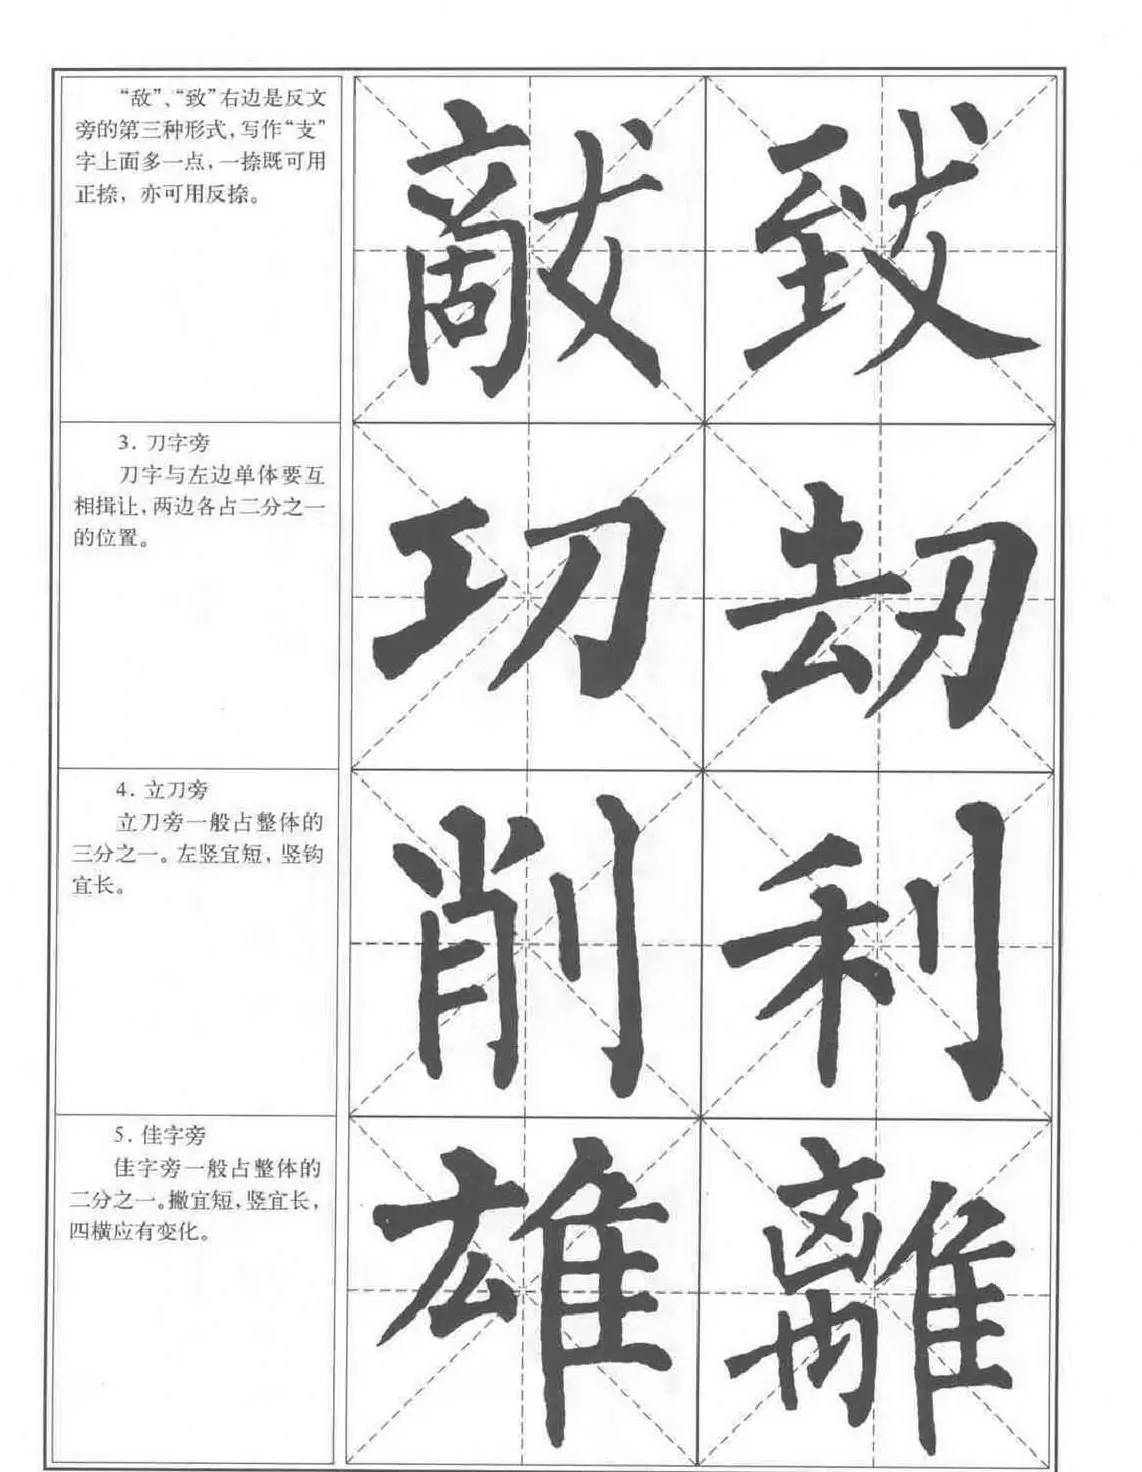 “敌”、“致”右边是反文
旁的第三种形式，写作“支”
字上面多一点，一捺既可用
正捺，亦可用反捺。
敵 致
3. 刀字旁
刀字与左边单体要互
相揖让，两边各占二分之一
的位置。
㓛 刼
4. 立刀旁
立刀旁一般占整体的
三分之一。左竖宜短，竖钩
宜长。
削 利
5. 隹字旁
隹字旁一般占整体的
二分之一。撇宜短，竖宜长，
四横应有变化。
雄 離